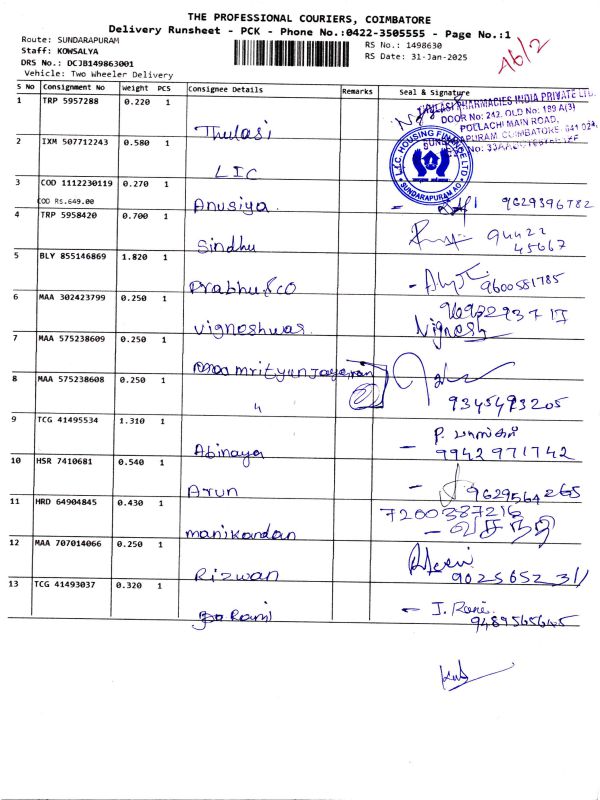 THE PROFESSIONAL COURIERS, COIMBATORE
Delivery Runsheet - PCK - Phone No.:0422-3505555 - Page No.:1
Route: SUNDARAPURAM
Staff: KOWSALYA
DRS No.: DCJB149863001
Vehicle: Two Wheeler Delivery
RS No.: 1498630
RS Date: 31-Jan-2025
A6/2
S No Consignment No Weight PCS Consignee Details Remarks Seal & Signature
1 TRP 5957288 0.220 1 Thulasi
THULASI PHARMACIES INDIA PRIVATE LTD.
DOOR No: 242, OLD No: 189 A(3)
POLLACHI MAIN ROAD,
SUNDARAPURAM, COIMBATORE - 641 024.
2 IXM 507712243 0.580 1 LIC
L.I.C. HOUSING FINANCE LTD
SUNDARAPURAM AO
3 COD 1112230119 0.270 1 Anusiya 9629396782
COD RS.649.00
4 TRP 5958420 0.700 1 Sindhu 94422
45667
5 BLY 855146869 1.820 1 Prabhu & CO 9600581785
6 MAA 302423799 0.250 1 Vigneshwar. Vignesh
7 MAA 575238609 0.250 1 mrityunjayaran
8 MAA 575238608 0.250 1 " 2 9345493205
9 TCG 41495534 1.310 1 Abinaya 9942971742
10 HSR 7410681 0.540 1 Arun 9629564265
11 HRD 64904845 0.430 1 manikandan 7200387216
12 MAA 707014066 0.250 1 Rizwan
13 TCG 41493037 0.320 1 Rami J. Rani
9489565645